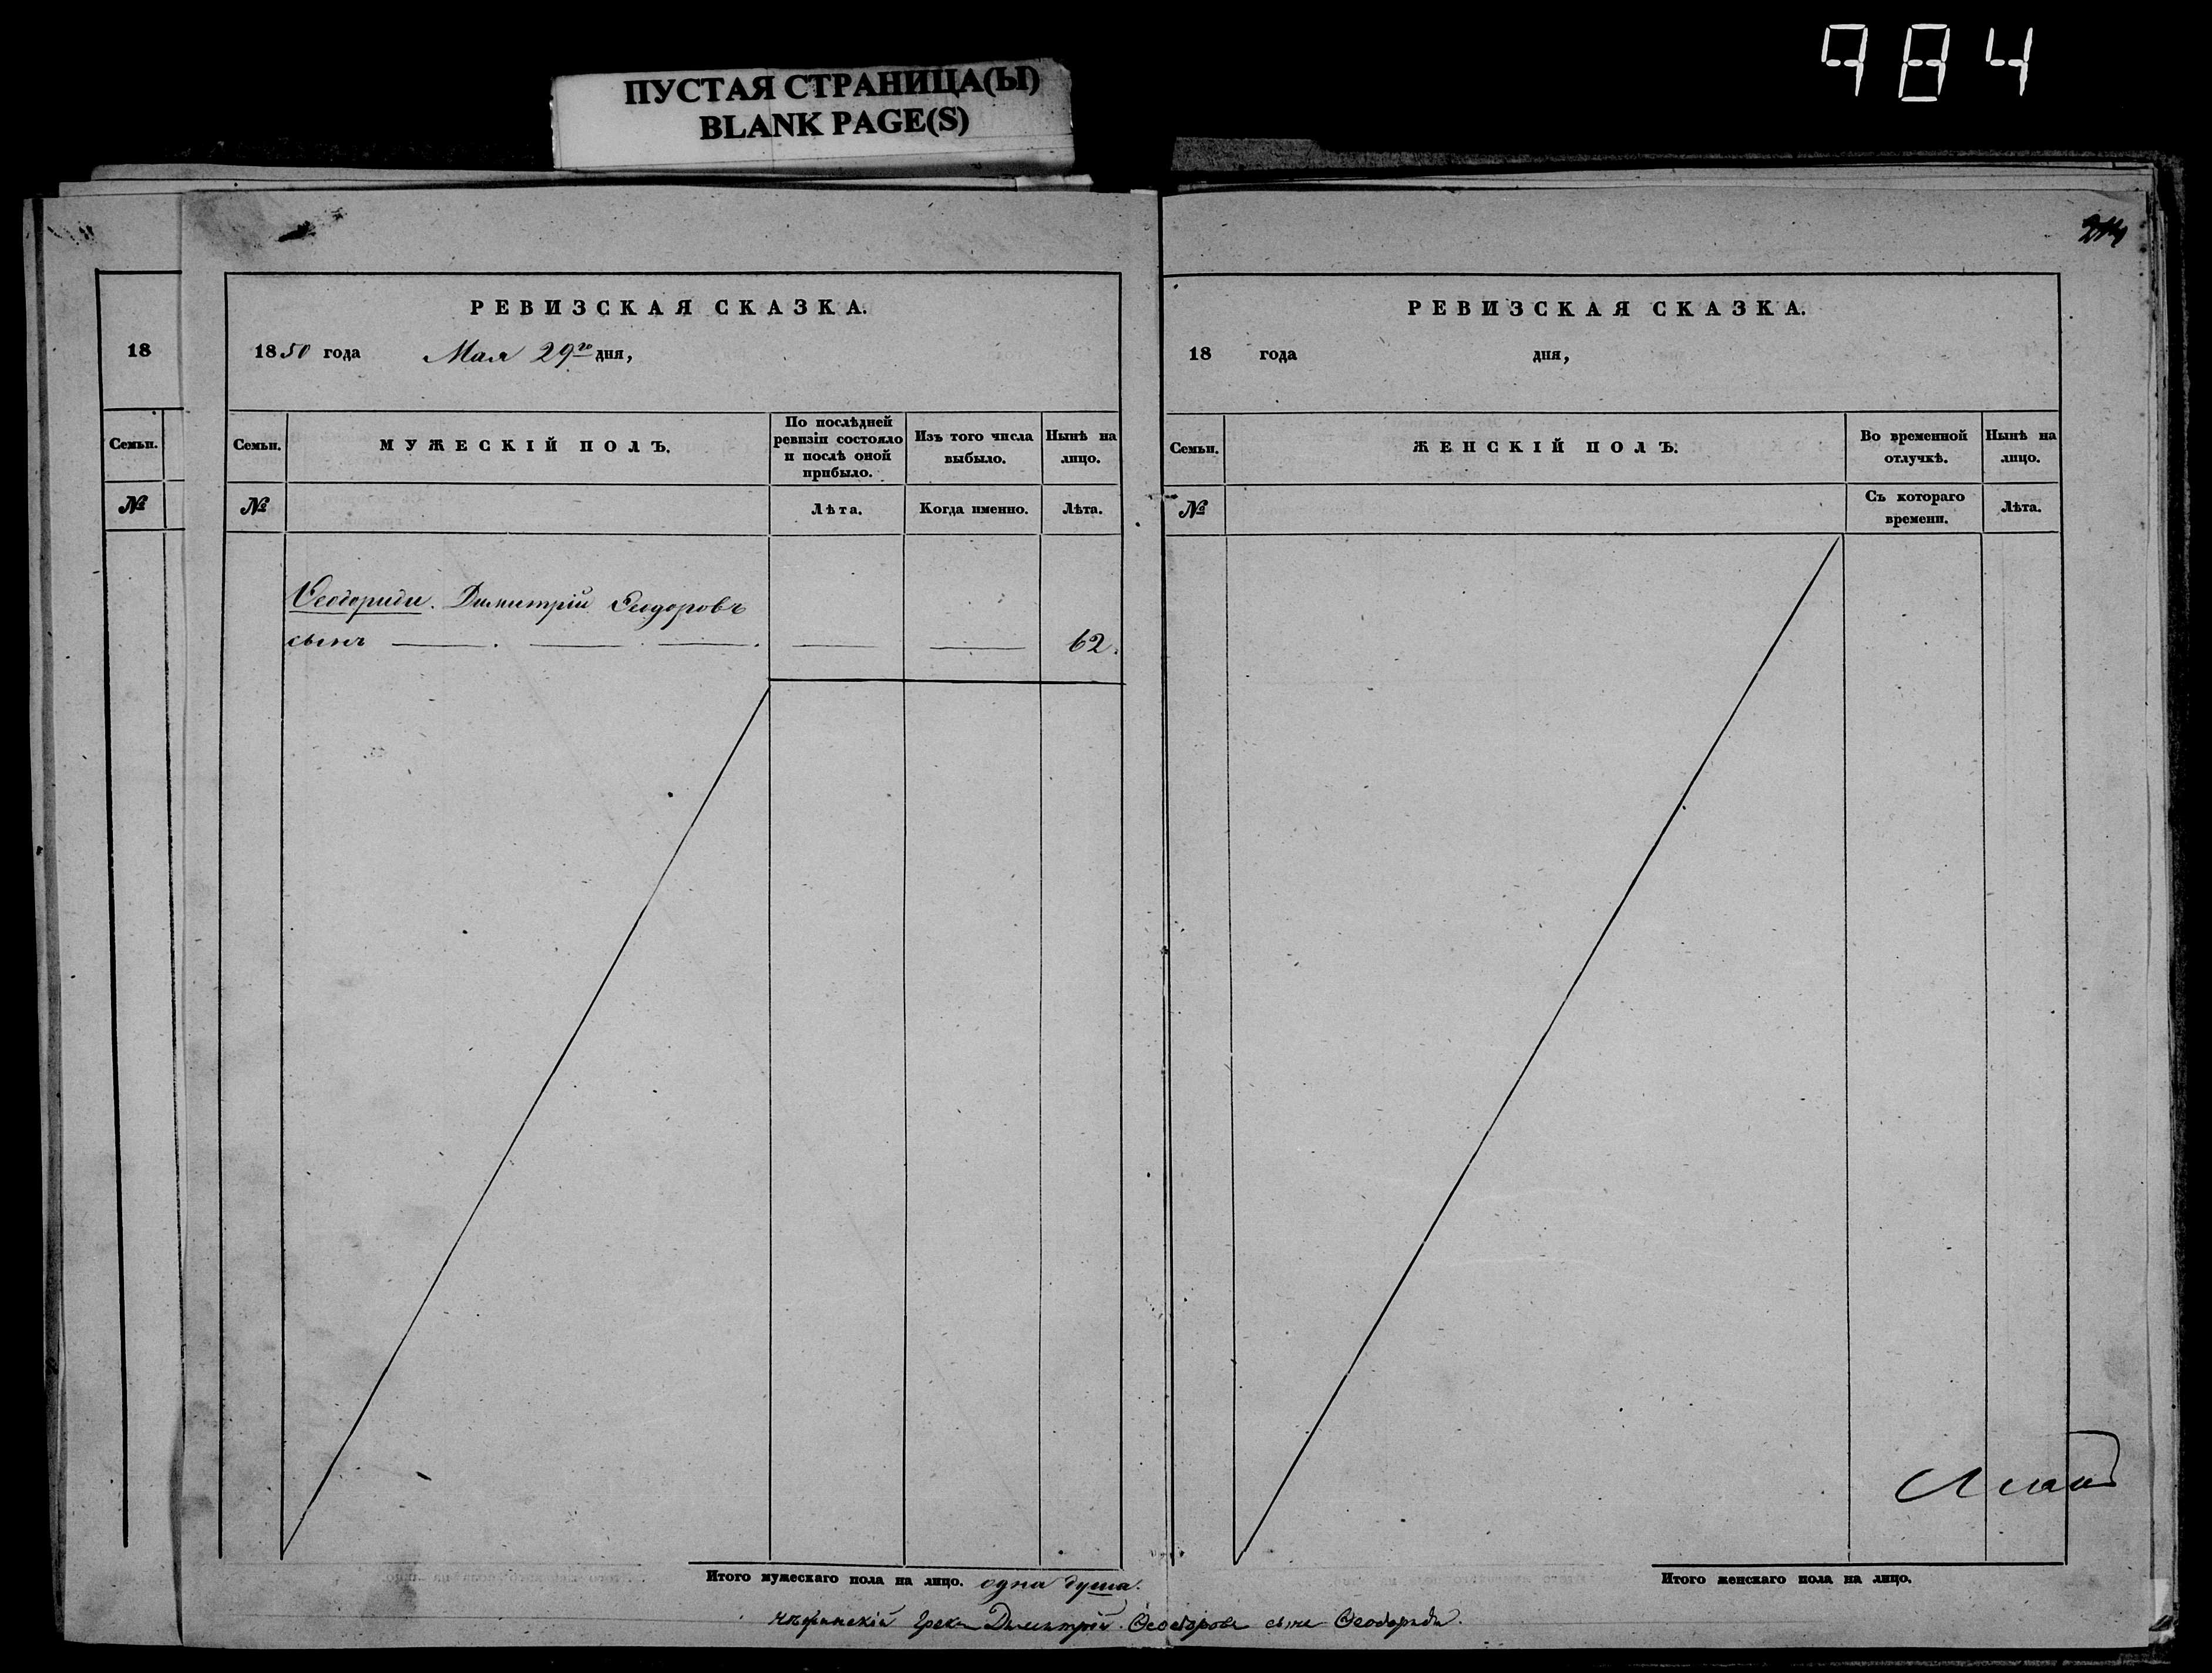 984
ПУСТАЯ СТРАНИЦА(Ы)
BLANK PAGE(S)
18
Семьи.
№
РЕВИЗСКАЯ СКАЗКА.
1850 года Мая 29го дня,
Семьи.
МУЖЕСКІЙ ПОЛЪ.
По послѣдней
ревизіи состояло
и послѣ оной
прибыло.
Изъ того числа
выбыло.
Нынѣ на
лицо.
№
Лѣта.
Когда именно.
Лѣта.
Ѳеодориди. Димитрій Ѳеодоровъ
сынъ — . — . — . — — 62.
Итого мужескаго пола на лицо. одна душа.
214
РЕВИЗСКАЯ СКАЗКА.
18 года дня,
Семьи.
ЖЕНСКІЙ ПОЛЪ.
Во временной
отлучкѣ.
Нынѣ на
лицо.
№
Съ котораго
времени.
Лѣта.
Итого женскаго пола на лицо.
Нѣжинскій Грекъ Димитрій Ѳеодоровъ сынъ Ѳеодориди.